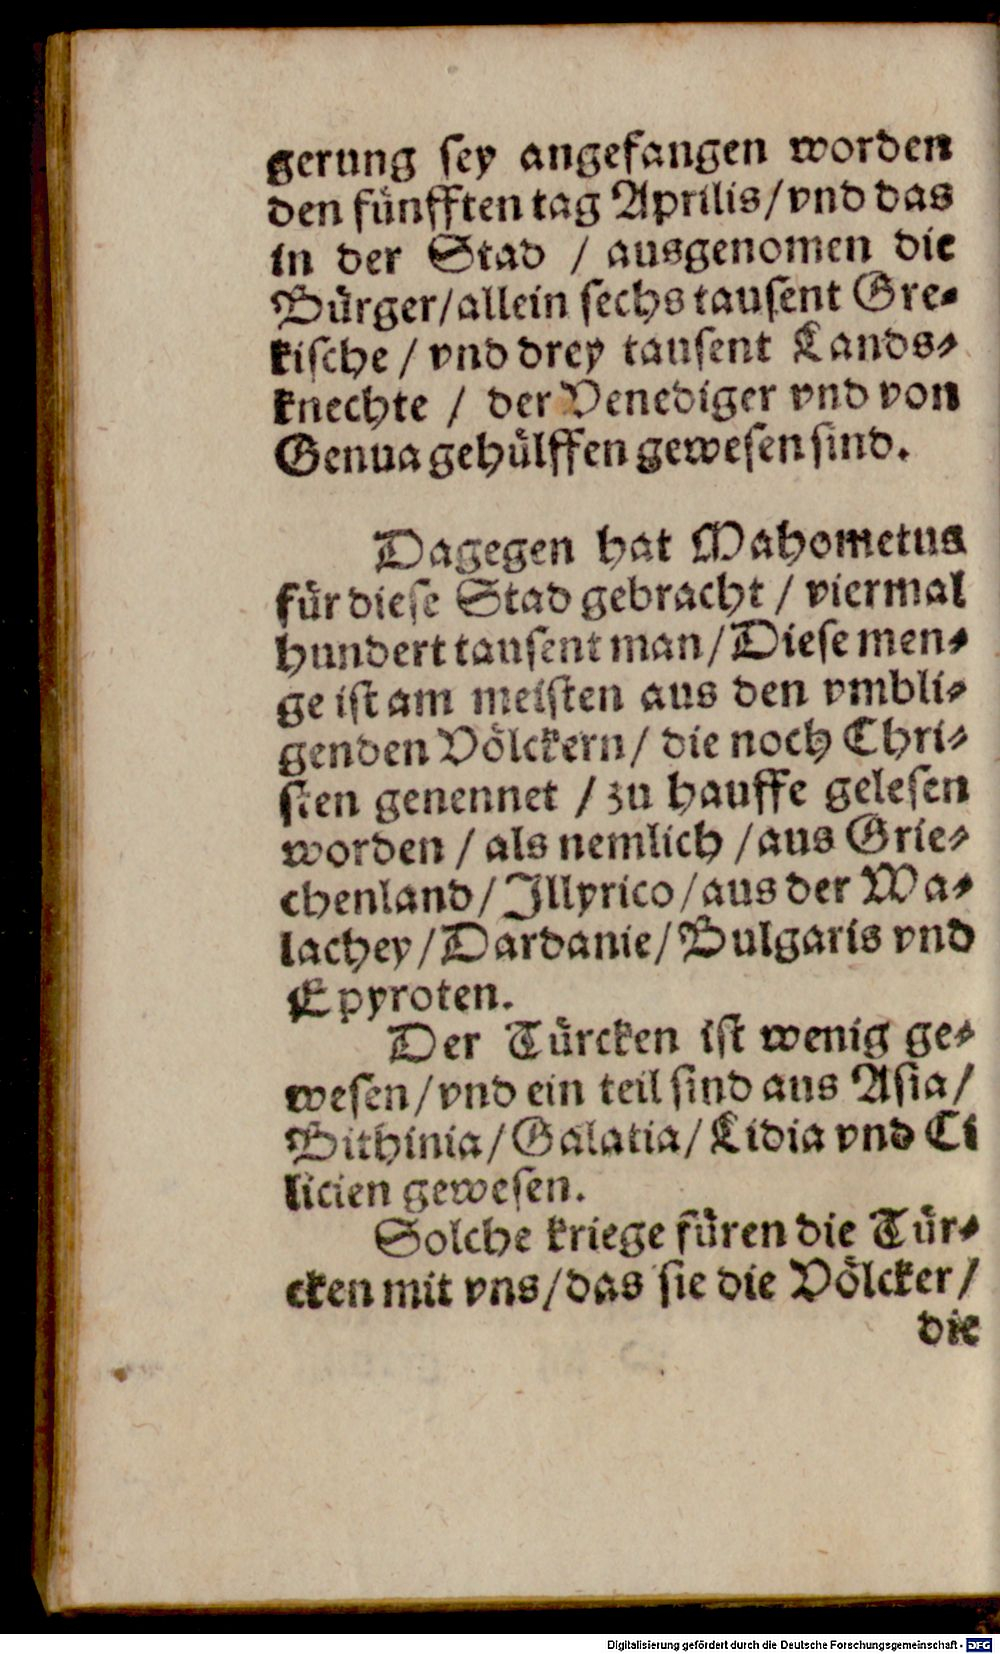 gerung sey angefangen worden
den fünfften tag Aprilis/vnd das
in der Stad / ausgenomen die
Bürger/allein sechs tausent Gre⸗
kische / vnd drey tausent Lands⸗
knechte / der Venediger vnd von
Genua gehülffen gewesen sind.
Dagegen hat Mahometus
für diese Stad gebracht / viermal
hundert tausent man/Diese men⸗
ge ist am meisten aus den vmbli⸗
genden Völckern/ die noch Chri⸗
sten genennet / zu hauffe gelesen
worden / als nemlich /aus Grie⸗
chenland/Illyrico/aus der Wa⸗
lachey/Dardanie/Bulgaris vnd
Epyroten.
Der Türcken ist wenig ge⸗
wesen/vnd ein teil sind aus Asia/
Bithinia/Galatia/Lidia vnd Ci
licien gewesen.
Solche kriege füren die Tür⸗
cken mit vns/das sie die Völcker/
die
Digitalisierung gefördert durch die Deutsche Forschungsgemeinschaft - DFG